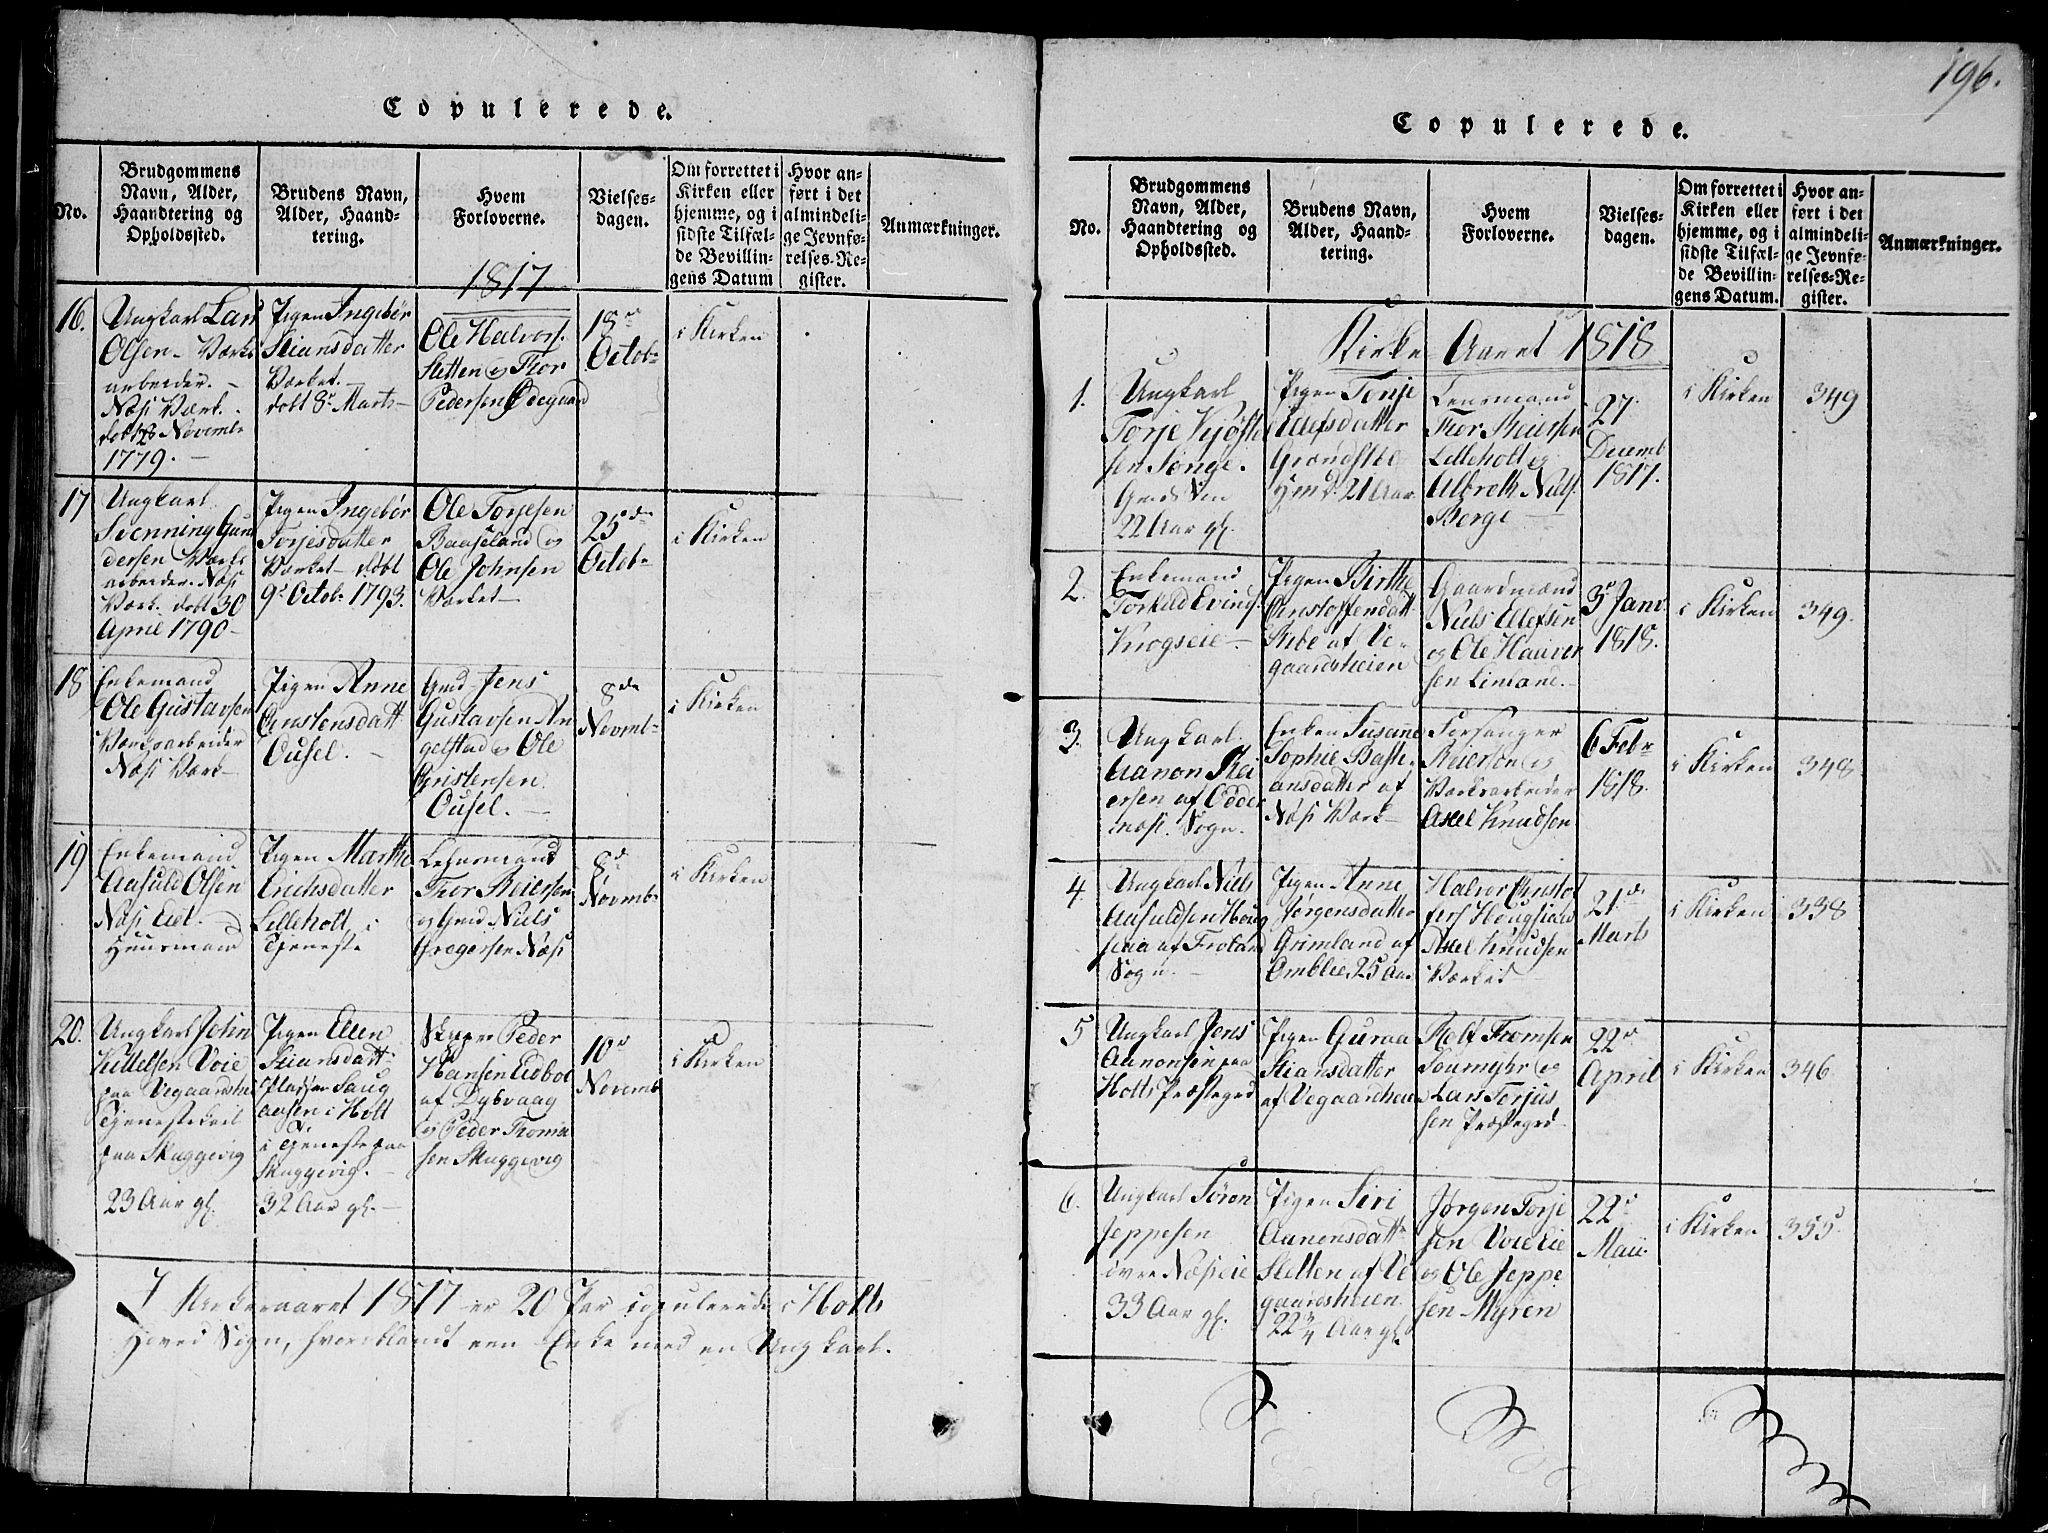 196.
Copulerede.
No.
Brudgommens
Navn, Alder,
Haandtering og
Opholdssted.
Brudens Navn,
Alder, Haand-
tering.
Hvem
Forloverne.
Vielses-
dagen.
Om forrettet i
Kirken eller
hjemme, og i
sidste Tilfæl-
de Bevillin-
gens Datum
Hvor an-
ført i det
almindeli-
ge Jevnfø-
relses-Re-
gister.
Anmærkninger.
1817
16.
Ungkarl Lars
Olsen - Værks
arbeider. -
Næs Værk.
døbt 28 Novembr
1779. -
Pigen Ingebor
Stiansdatter
Værket. -
døbt 8d Marts -
Ole Halvors.
Sletten og Thor
Pedersen Ødegaard
18de
Octob.
i Kirken
17
Ungkarl
Svenning Gun
dersen Værks
arbeider. Næs
Værk. døbt 30
April 1790 -
Pigen Ingebor
Torjesdatter
Værket - døbt
9d Octob. 1793.
Ole Torjesen
Baaseland og
Ole Johnsen
Værket -
25de
Octob.
i Kirken
18
Enkemand
Ole Gustavsen
Værksarbeider
Næs Værk -
Pigen Anne
Christensdatt
Ousel. -
Gmd Jens
Gustavsen An
gelstad og Ole
Christensen
Ousel. -
8de
Novmb.
i Kirken
19
Enkemand
Aasuld Olsen
Næs Eiet. -
Huusmand
Pigen Marthe
Erichsdatter
Lilleholt i
Tjeneste
Lehnsmand
Thor Reiersen
og Gmd Niels
Gregersen Næs
8d
Novmb.
i Kirken
20.
Ungkarl John
Kittelsen Voie
paa Vegaardshei
Tjenestekarl
paa Skuggevig
23 Aar gl.
Pigen Ellen
Stiansdatt.
Pladsen Saug
aasen i Holt
i Tjeneste paa
Skuggevig. -
32 Aar gl. -
Skipper Peder
Hansen Eidboe
af Dybvaag
og Peder Thomæ
sen Skuggevig
10de
Novemb
i Kirken
I Kirkeaaret 1817 er 20 Par copulerede i Holts
Hoved Sogn, hvoriblandt een Enke med en Ungkarl.
Copulerede.
No.
Brudgommens
Navn, Alder,
Haandtering og
Opholdssted.
Brudens Navn,
Alder, Haand-
tering.
Hvem
Forloverne.
Vielses-
dagen.
Om forrettet i
Kirken eller
hjemme, og i
sidste Tilfæl-
de Bevillin-
gens Datum.
Hvor an-
ført i det
almindeli-
ge Jevnfø-
relses-Re-
gister.
Anmærkninger.
Kirke Aaret 1818
1.
Ungkarl
Torje
sen Songe.
22 Aar gl.
Pigen Tonje
Ellefsdatter
21 Aar
Lensmand
Thor Reiersen
Lilleholt og
Albreth Niels.
Berge -
27.
Decemb
1817.
i Kirken
349
2.
Enkemand
Torkild Evinds.
Krogseie -
Pigen Birthe
Christoffersdatt
Ribe af Ve-
gaardsheien
Gaardmænd
Niels Ellefsen
og Ole Haaver
sen Limane. -
3d Janv.
1818.
i Kirken
349.
3.
Ungkarl.
Aanon Rei
ersen af Odder
næs Sogn.
Enken Susanne
Sophie Basti-
ansdatter af
Næs Værk -
Forsanger
Reierson og
Værksarbeider
Axel Knudsen
6 Febr
1818.
i Kirken
348
4.
Ungkarl Niels
Aasuldsen Houg
seia af Froland
Sogn. -
Pigen Anne
Jørgensdatter
Grimland af
Omblie 25 Aar
Halvor Christof
fers Hougsiaas
Axel Knudsen
Værket -
21de
Marts
i Kirken
338
5
Ungkarl Jens
Aanonsen paa
Holts Præstegrd
Pigen Guraa
Stiansdatter
af Vegaardsheien
Rolf Thomsen
Soumyhr og
Lars Torjus
sen Præstegrd.
22d
April
i Kirken
346.
6.
Ungkarl Søren
Jeppesen
øvre Næs eie
33 Aar gl.
Pigen Siri
Aanonsdatt.
Sletten af Ve
gaardsheien.
22 3/4 Aar gl.
Jørgen Torje
sen Voie Eie
og Ole Jeppe
sen Myren
22d
Maii.
i Kirken
355.